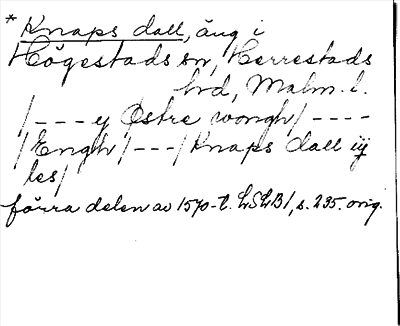 * Knaps dall, äng i
Högestads sn, Herrestads
hd, Malm. l.
/ - - - ey Østre wongh / - - - -
/ Engh / - - - / Knaps dall iij
les /
förra delen av 1570-t. LSLB1, s. 235. orig.